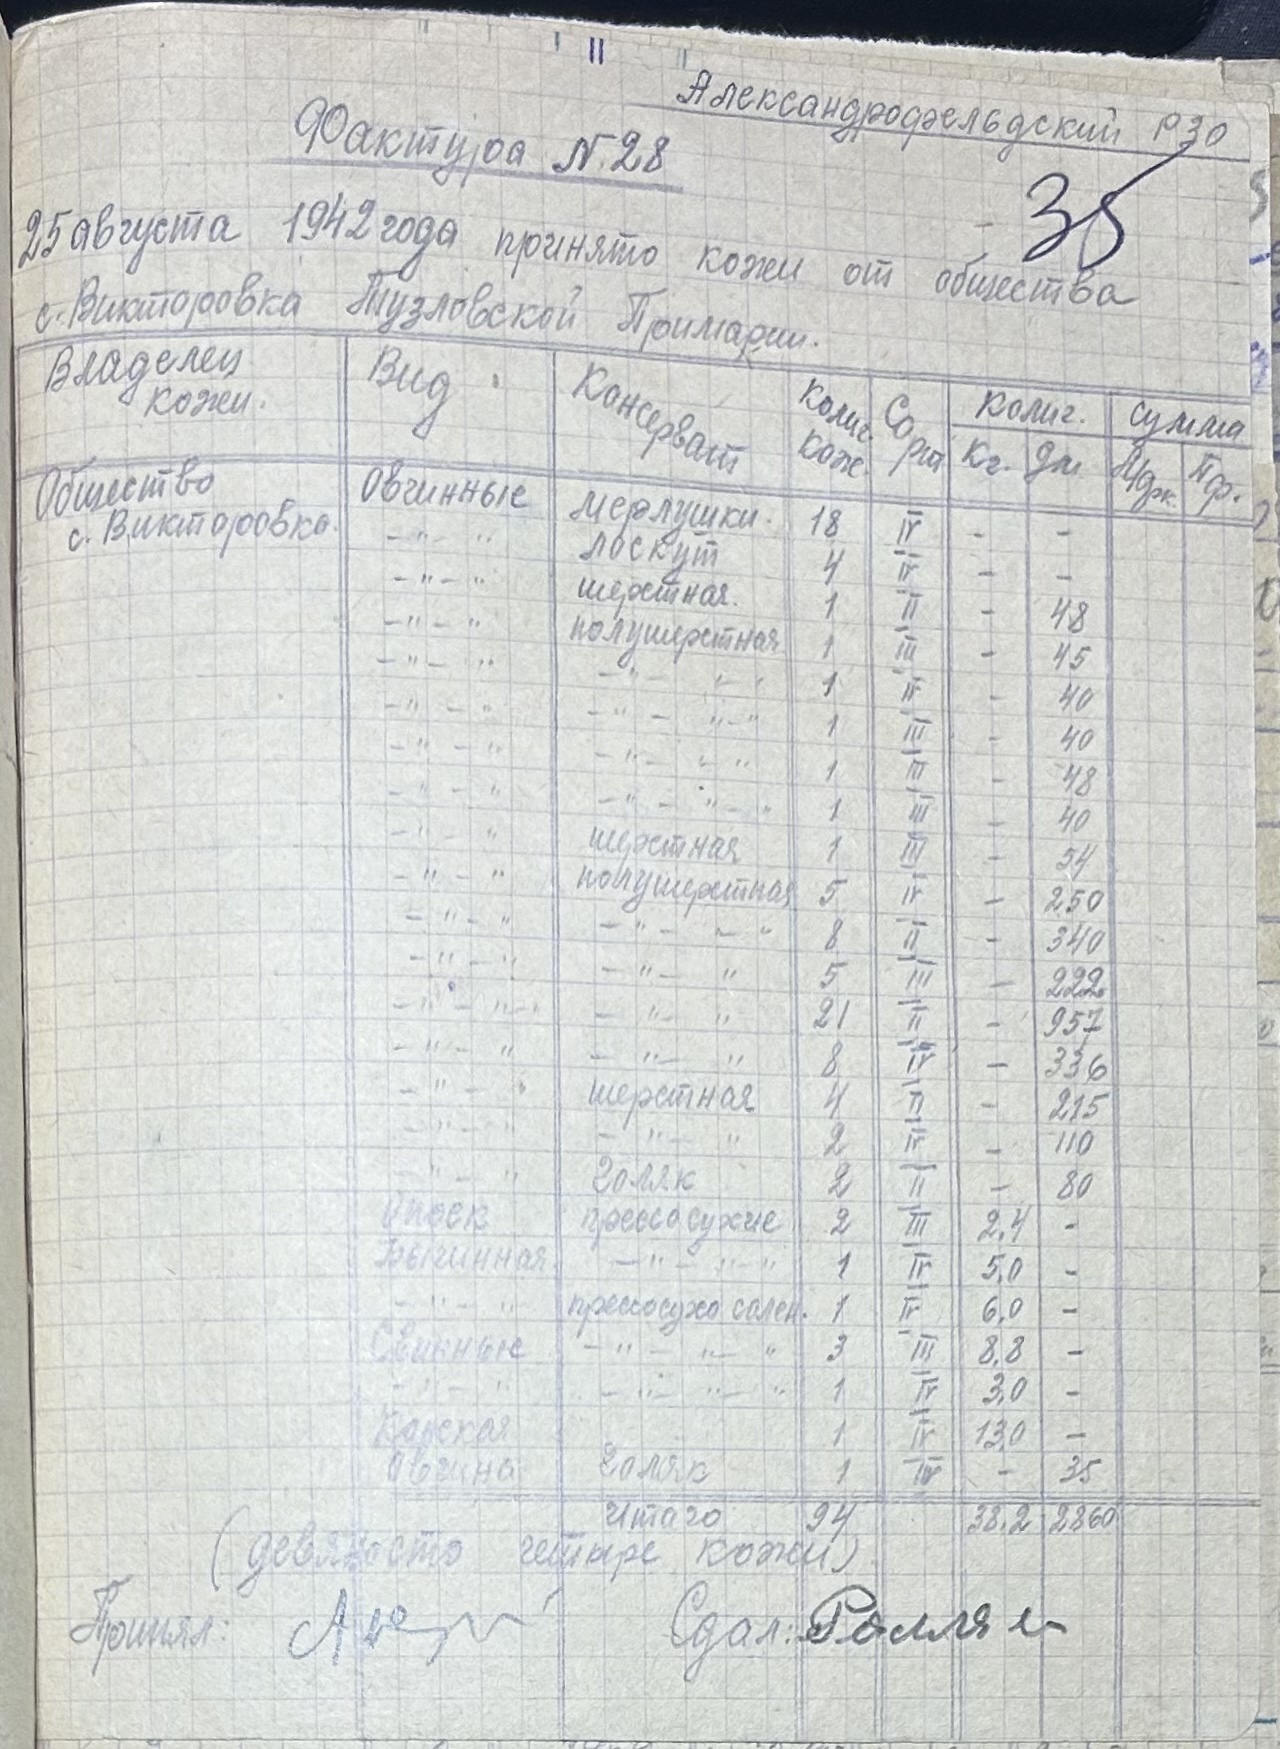 Александрофельдский РЗО
Фактура №28
35
25 августа 1942 года принято кожи от общества
с. Викторовка Тузловской Примарии.
Владелец кожи. Вид Консерват Колич. кож. Сорт Колич. Кг. Дм. Сумма Мрк. Пф.
Общество Овчинные мерлушки. 18 IV - -
с. Викторовка. -"-" лоскут 4 IV - -
-"-" шерстная. 1 II - 48
-"-" полушерстная 1 III - 45
-"-" -"-" 1 IV - 40
-"-" -"-"-" 1 III - 40
-"-" -"-" 1 III - 48
-"-" -"-"-" 1 III - 40
-"-" шерстная 1 III - 54
-"-" полушерстная 5 IV - 250
-"-" -"-"-" 8 II - 340
-"-" -"-" 5 III - 222
-"-" -"-" 21 II - 957
-"-" -"-" 8 IV - 336
-"-" шерстная 4 II - 215
-"-" -"-" 2 IV - 110
-"-" голяк 2 II - 80
Опоек прессосухие 2 III 2,4 -
Бычинная -"-"-" 1 IV 5,0 -
-"-" прессосухо солен. 1 IV 6,0 -
Свинные -"-"-" 3 III 8,8 -
-"-" -"-"-" 1 IV 3,0 -
Конская 1 IV 13,0 -
Овчина голяк 1 IV - 35
Итого 94 38,2 2860
(девяносто четыре кожи)
Принял: Сдал: